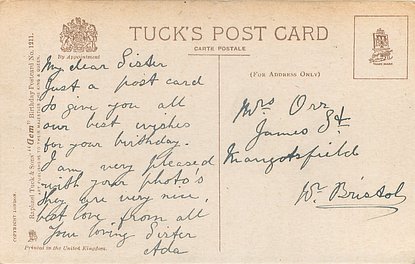 TUCK'S POST CARD
CARTE POSTALE
By Appointment
(FOR ADDRESS ONLY)
My dear Sister
Just a post card
to give you all
our best wishes
for your birthday.
I am very pleased
with your photo's
they are very nice,
best love from all
Your loving Sister
Ada
Mrs Orr
James St
Mangotsfield
Nr. Bristol
Raphael Tuck & Sons' "Gem" Birthday Postcard No. 1211.
COPYRIGHT LONDON
Printed in the United Kingdom.